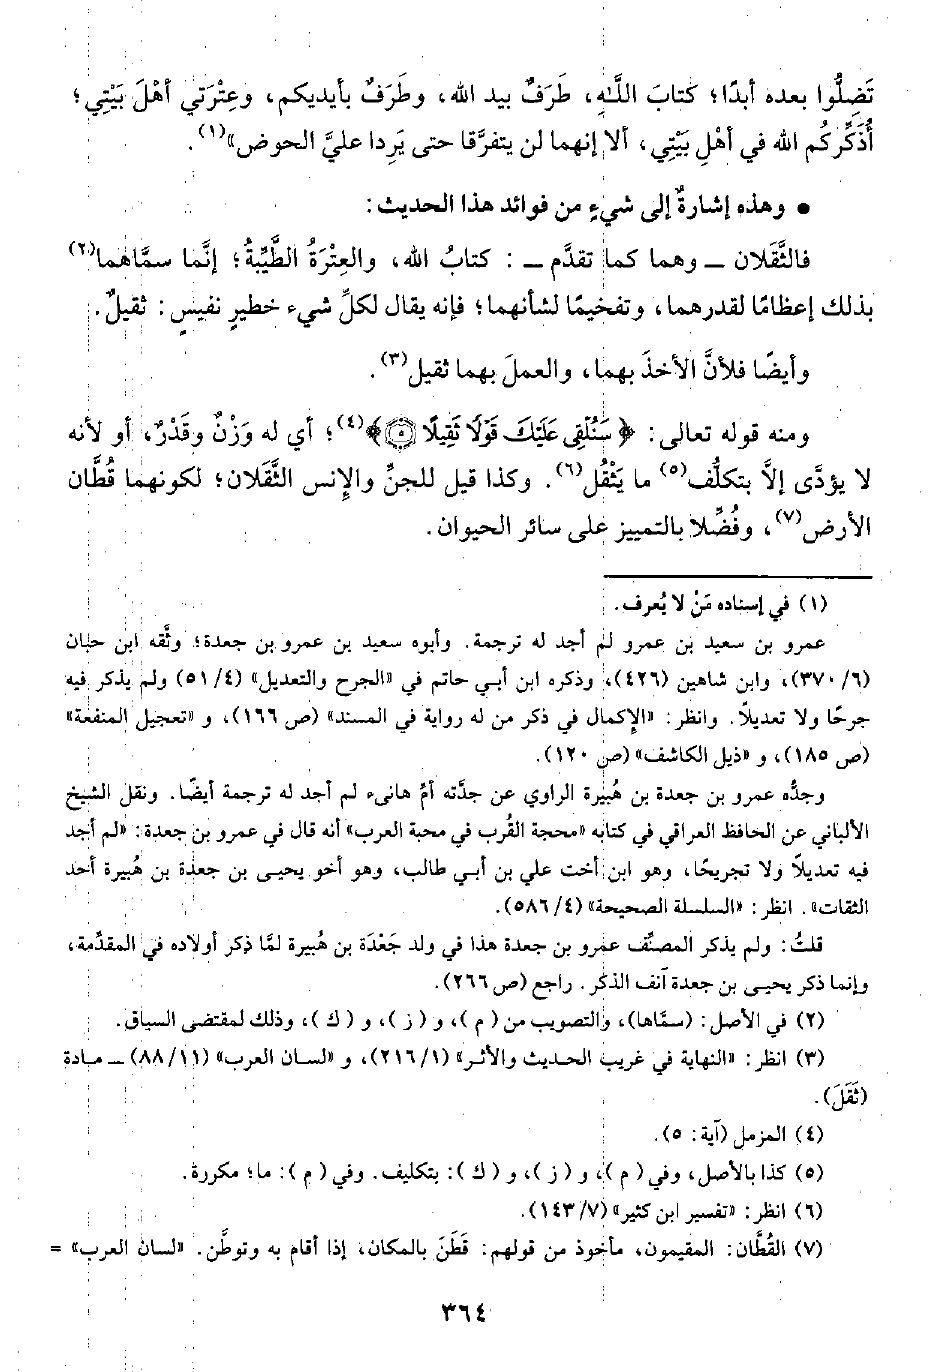 تَضِلُّوا بعده أبدًا؛ كتابَ اللَّهِ، طَرَفٌ بيد الله، وطَرَفٌ بأيديكم، وعِتْرَتي أهْلَ بَيْتِي؛
أُذَكِّرُكُم الله في أهْلِ بَيْتِي، ألا إنهما لن يتفرَّقا حتى يَرِدا عليَّ الحوض»(١).
● وهذه إشارةٌ إلى شيءٍ من فوائد هذا الحديث:
فالثَّقَلان ــ وهما كما تقدَّم ــ : كتابُ الله، والعِتْرَةُ الطَّيِّبةُ؛ إنَّما سمَّاهما(٢)
بذلك إعظامًا لقدرهما، وتفخيمًا لشأنهما؛ فإنه يقال لكلِّ شيء خطيرٍ نفيسٍ: ثقيلٌ.
وأيضًا فلأنَّ الأخذَ بهما، والعملَ بهما ثقيل(٣).
ومنه قوله تعالى: ﴿سَنُلْقِى عَلَيْكَ قَوْلًا ثَقِيلًا ۝٥﴾(٤)؛ أي له وَزْنٌ وقَدْرٌ، أو لأنه
لا يؤدَّى إلاَّ بتكلُّف(٥) ما يَثْقُل(٦). وكذا قيل للجنِّ والإنس الثَّقَلان؛ لكونهما قُطَّان
الأرض(٧)، وفُضِّلا بالتمييز على سائر الحيوان.
(١) في إسناده مَنْ لا يُعرف.
عمرو بن سعيد بن عمرو لم أجد له ترجمة. وأبوه سعيد بن عمرو بن جعدة؛ وثَّقه ابن حبان
(٦/ ٣٧٠)، وابن شاهين (٤٢٦)، وذكره ابن أبي حاتم في «الجرح والتعديل» (٤/ ٥١) ولم يذكر فيه
جرحًا ولا تعديلًا. وانظر: «الإكمال في ذكر من له رواية في المسند» (ص ١٦٦)، و «تعجيل المنفعة»
(ص ١٨٥)، و «ذيل الكاشف» (ص ١٢٠).
وجدُّه عمرو بن جعدة بن هُبيرة الراوي عن جدَّته أمِّ هانىء لم أجد له ترجمة أيضًا. ونقل الشيخ
الألباني عن الحافظ العراقي في كتابه «محجة القُرب في محبة العرب» أنه قال في عمرو بن جعدة: «لم أجد
فيه تعديلًا ولا تجريحًا، وهو ابن أخت علي بن أبي طالب، وهو أخو يحيـى بن جعدة بن هُبيرة أحد
الثقات». انظر: «السلسلة الصحيحة» (٤/ ٥٨٦).
قلتُ: ولم يذكر المصنِّف عمرو بن جعدة هذا في ولد جَعْدَة بن هُبيرة لمَّا ذكر أولاده في المقدِّمة،
وإنما ذكر يحيـى بن جعدة آنف الذكر. راجع (ص ٢٦٦).
(٢) في الأصل: (سمَّاها)، والتصويب من (م)، و (ز)، و (ك)، وذلك لمقتضى السياق.
(٣) انظر: «النهاية في غريب الحديث والأثر» (١/ ٢١٦)، و «لسان العرب» (١١/ ٨٨) ــ مادة
(ثَقَلَ).
(٤) المزمل (آية: ٥).
(٥) كذا بالأصل، وفي (م)، و (ز)، و (ك): بتكليف. وفي (م): ما؛ مكررة.
(٦) انظر: «تفسير ابن كثير» (٧/ ١٤٣).
(٧) القُطَّان: المقيمون، مأخوذ من قولهم: قَطَنَ بالمكان، إذا أقام به وتوطَّن. «لسان العرب» =
٣٦٤